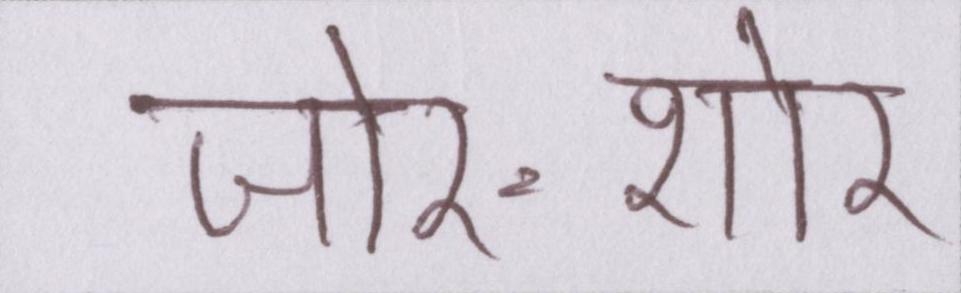 जोर-शोर